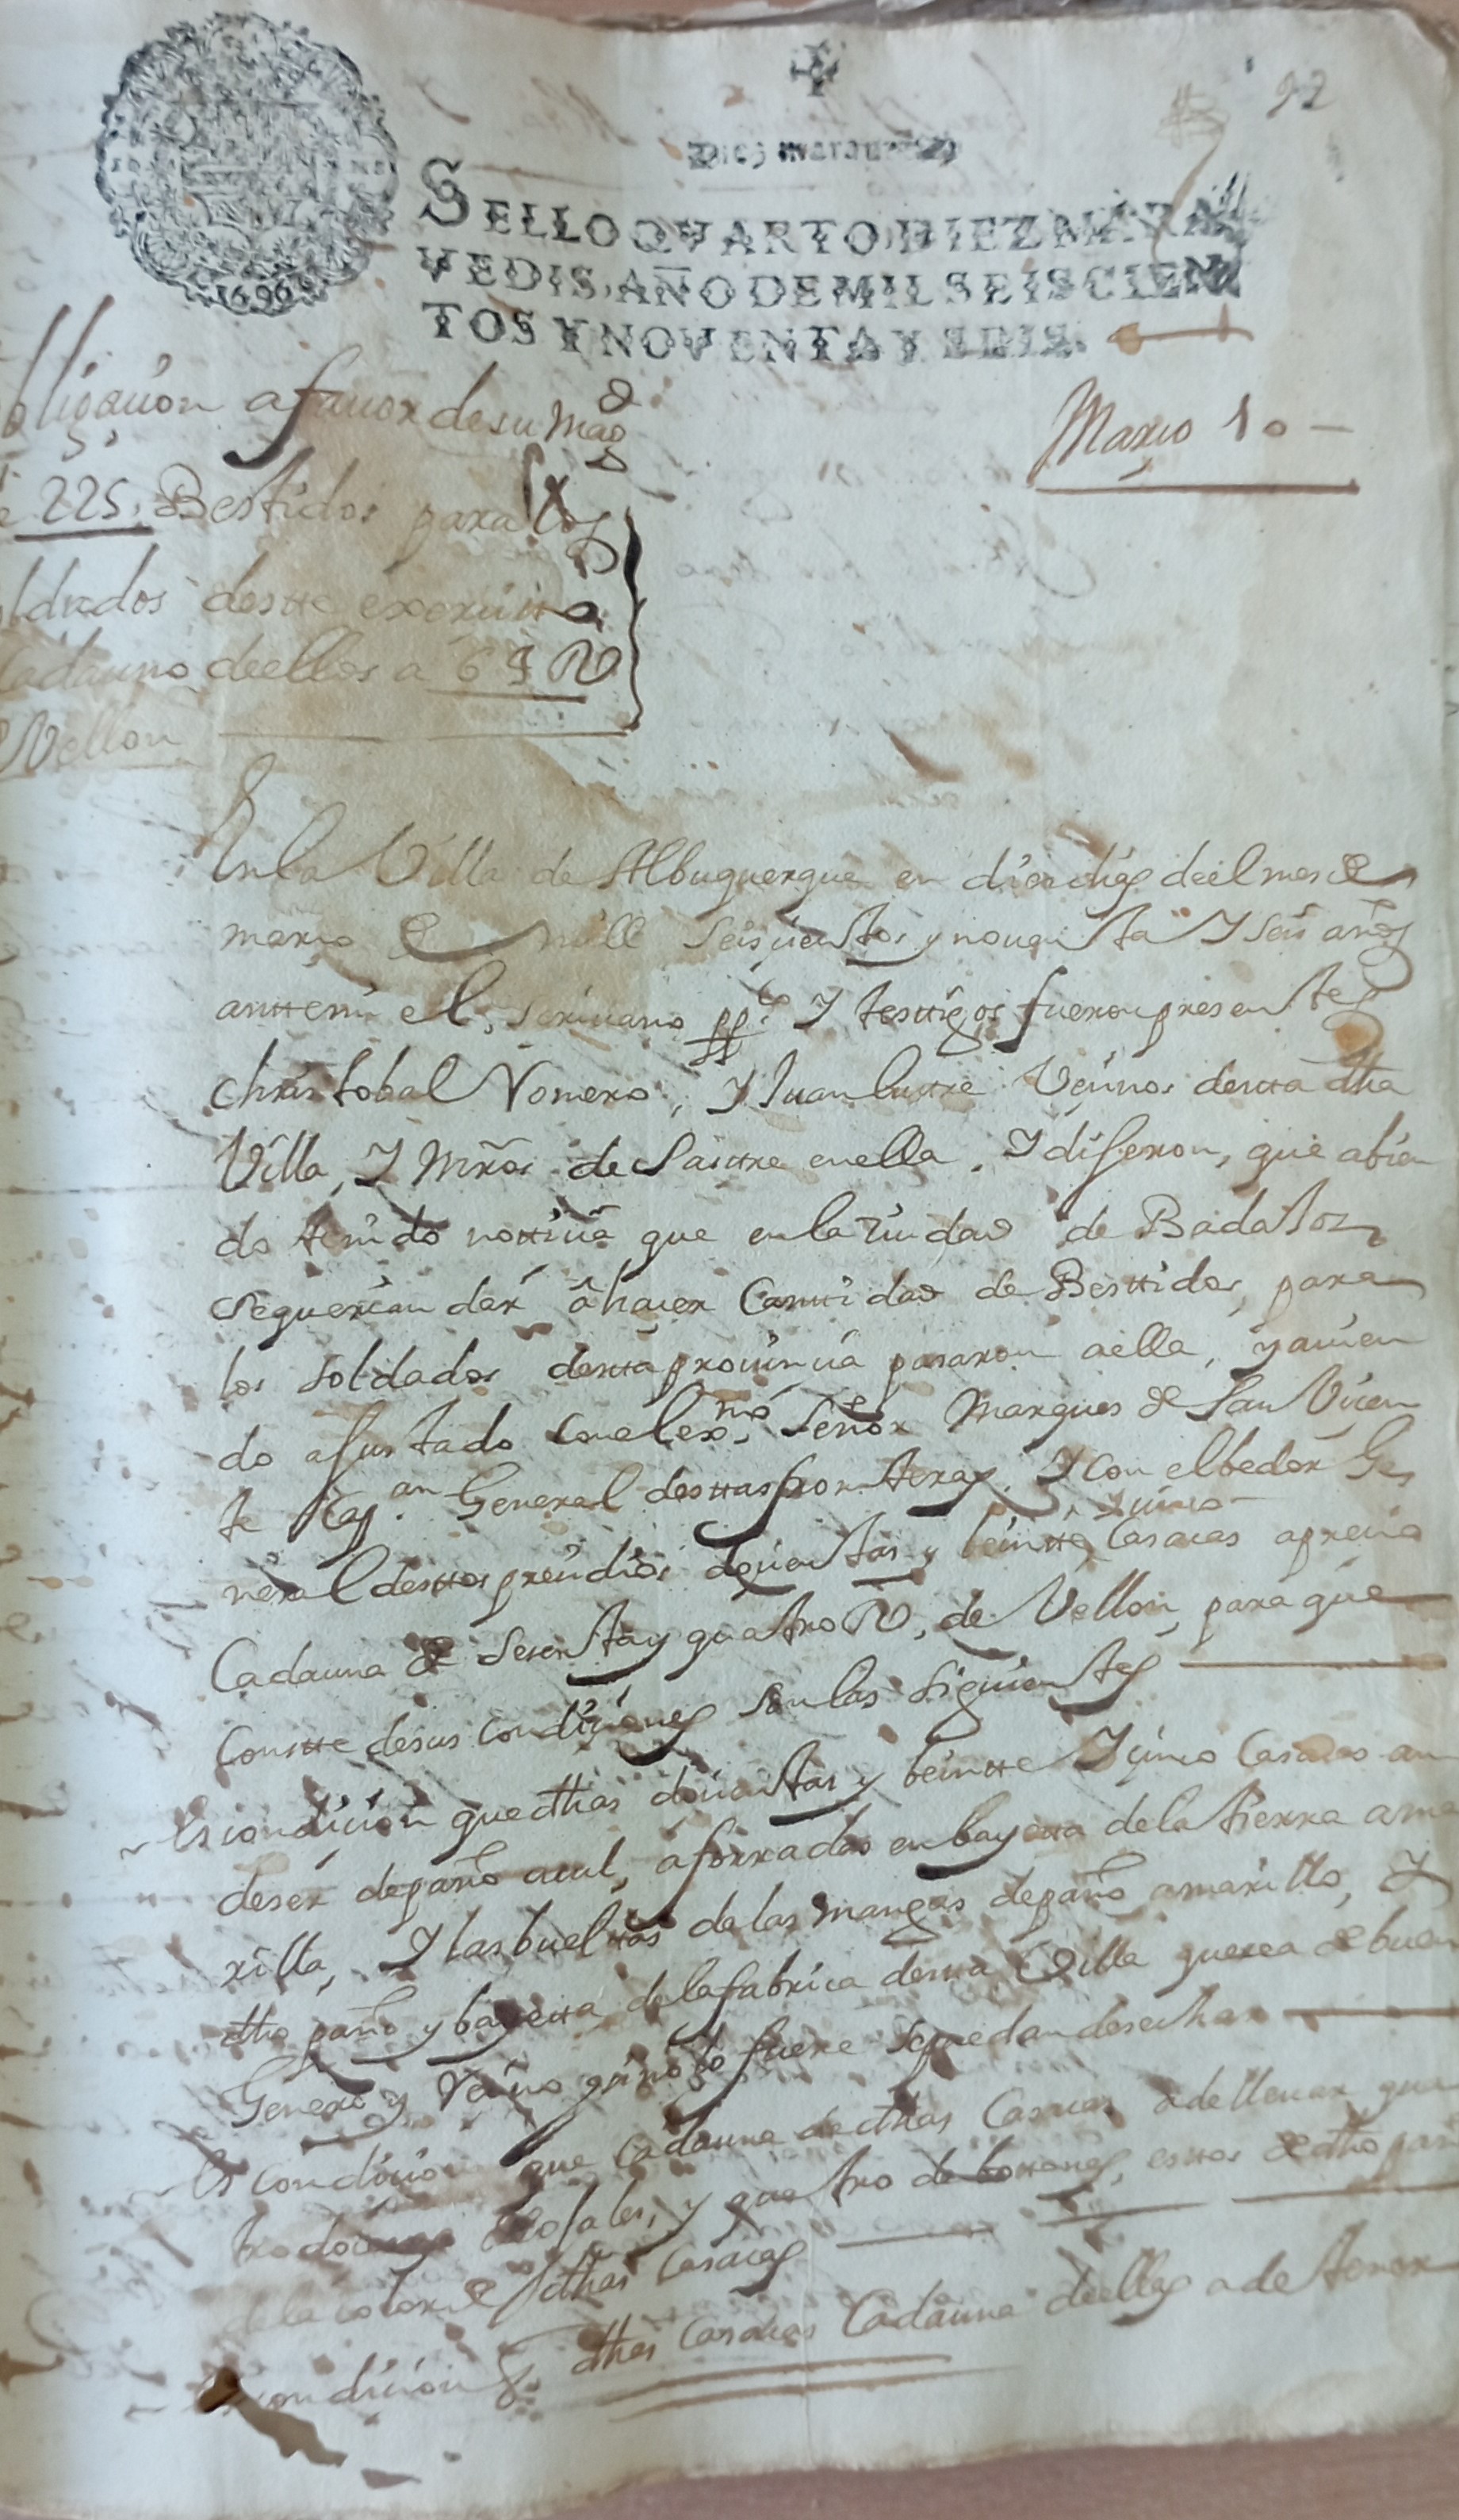 92
Diez marauedis
SELLO QVARTO DIEZ MARA
VEDIS, AÑO DE MIL SEISCIEN
TOS Y NOVENTA Y SEIS.
1696
obligaçion a fauor de su Magd
Março 10
225. Bestidos para los
soldados destte exerçitto
Cada uno deellos a 64 R
Vellon
En la Villa de Alburquerque en diez dias deel mes de
março de mill seisçientos y nouenta Y seis años
anttemi el, scriuano ppco Y testtigos fueron presentes
Christobal Romero, Y Juan Vecinos destta dha
Villa, Y Mros de Sasttre en ella. Y dijeron, que abien
do tenido nottiçia que en la ciudad de Badajoz
se querian dar â haçer Canttidad de Besttidos, para
los soldados destta prouinçia pasaron a ella, y auien
do ajustado con el exmo, Señor Marques de San Vicen
te Capan General desttas fronteras. Y con el bedor Ge
neral desttos preçidios doçientas y beintte Y çinco Casacas a preçio
Cada una de Sesenta y quatro R, de Vellon, para que
Constte de sus condiçiones son las siguientes
Es condiçion que dhas doçientas y beintte Y çinco Casacas an
de ser de paño açul, aforradas en bayetta de la tierra ama
rilla, Y las bueltas de las mangas de paño amarillo, Y
dho paño y bayetta de la fabrica destta Villa que sea de buen
Genero y Reçiuo y si no lo fuere se puedan desechar
Es Condiçion que Cada una de dhas Casacas a de lleuar qua
tro doçenas de ojales, y quatro de bottones, esttos de dho paño
de la color de dhas Casacas
Es condiçion q dhas Casacas Cada una deellas a de tener